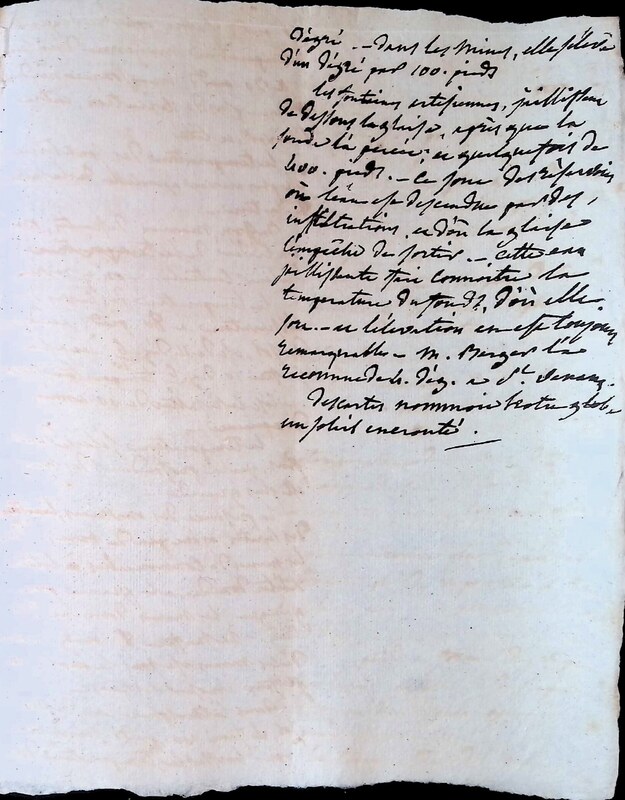 dégré. – dans les mines, elle s'élève
d'un dégré par 100. pieds
les fontaines artesiennes, jaillissent
de dessous la glaise, après que la
sonde l'a percée; a quelquefois de
400. pieds. – ce sont des réservoirs
où l'eau est descendue par des
infiltrations, et d'où la glaise
l'empêche de sortir. – cette eau
jaillissante fait connoitre la
temperature du fond, d'où elle
sort. – et l'élévation en est toujours
remarquable – M. Berger l'a
reconnue de 4. dég. a St.
Descartes nommoit notre globe
un soleil encrouté.